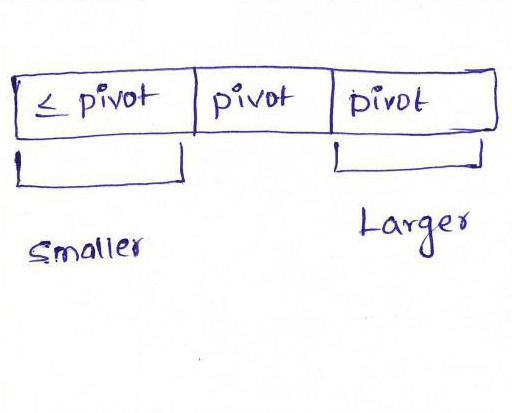 ≤ pivot pivot pivot
Smaller Larger